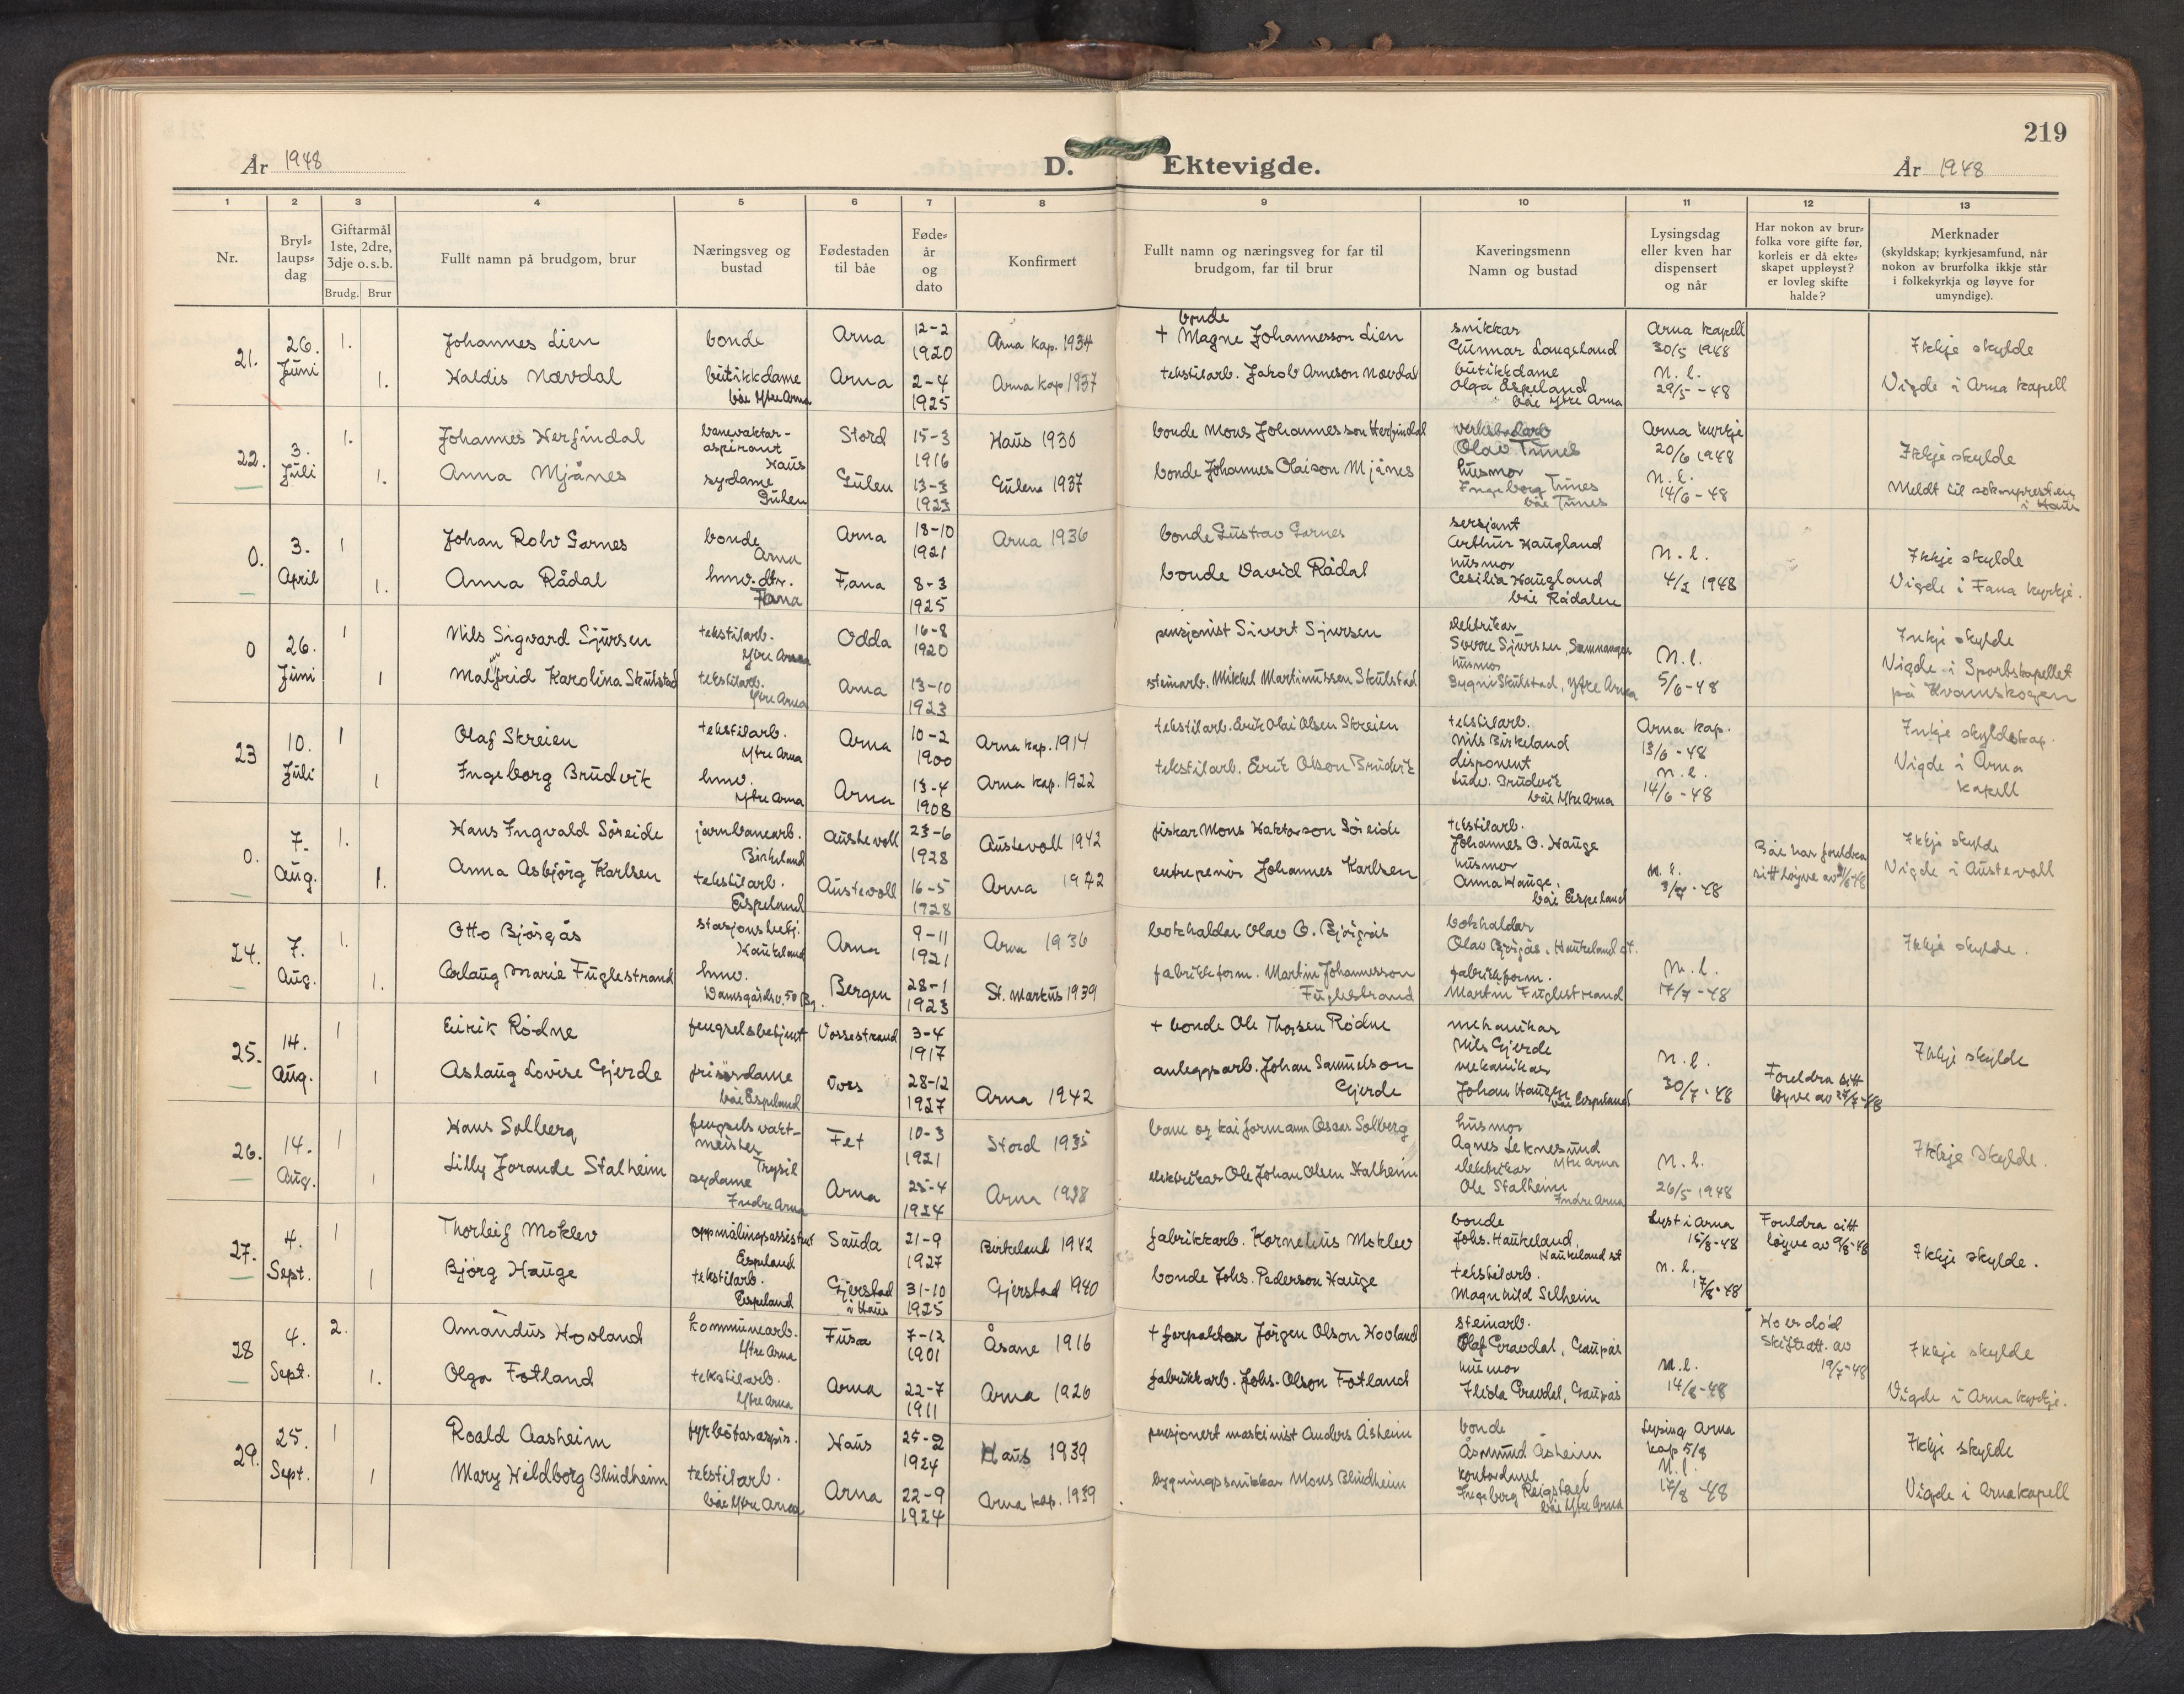 219
År 1948 D. Ektevigde. År 1948
1 2 3 4 5 6 7 8 9 10 11 12 13
Nr.
Bryl-
laups-
dag
Giftarmål
1ste, 2dre,
3dje o.s.b.
Brudg. Brur
Fullt namn på brudgom, brur
Næringsveg og
bustad
Fødestaden
til båe
Føde-
år
og
dato
Konfirmert
Fullt namn og næringsveg for far til
brudgom, far til brur
Kaveringsmenn
Namn og bustad
Lysingsdag
eller kven har
dispensert
og når
Har nokon av brur-
folka vore gifte før,
korleis er då ekte-
skapet uppløyst?
er lovleg skifte
halde?
Merknader
(skyldskap; kyrkjesamfund, når
nokon av brurfolka ikkje står
i folkekyrkja og løyve for
umyndige).
21.
26.
Juni
1.
Johannes Lien
bonde
Arna
12-2
1920
Arna kap. 1934
bonde
+ Magne Johannesson Lien
snikkar
Gunnar Langeland
Arna kapell
30/5 1948
Ikkje skylde
1.
Haldis Nævdal
butikkdame
båe Ytre Arna
Arna
2-4
1925
Arna kap 1937
tekstilarb. Jakob Arneson Nævdal
butikkdame
Olga Espeland
båe Ytre Arna
N. l.
29/5 -48
Vigde i Arna kapell
22.
3.
Juli
1.
Johannes Herfindal
banevaktar-
aspirant
Haus
Stord
15-3
1916
Haus 1930
bonde Mons Johannesson Herfindal
Olav Tunes
Arna kyrkje
20/6 1948
Ikkje skylde
1.
Anna Mjånes
sydame
Gulen
Gulen
13-3
1923
Gulen 1937
bonde Johannes Olaison Mjånes
husmor
Ingeborg Tunes
båe Tunes
N. l.
14/6 - 48
Meldt til soknepresten
i Haus
0.
3.
April
1
Johan Rolv Garnes
bonde
Arna
Arna
18-10
1921
Arna 1936
bonde Gustav Garnes
sersjant
Arthur Haugland
N. l.
Ikkje skylde
1.
Anna Rådal
hmv. dtr.
Fana
Fana
8-3
1925
bonde David Rådal
husmor
Cesilia Haugland
båe Rådalen
4/2 1948
Vigde i Fana kyrkje.
0
26.
Juni
1
Nils Sigvard Sjursen
tekstilarb.
Ytre Arna
Odda
16-8
1920
pensjonist Sivert Sjursen
elektrikar
Sverre Sjursen, Samnanger
N. l.
Inkje skylde
1
Malfrid Karolina Skulstad
tekstilarb.
Ytre Arna
Arna
13-10
1923
steinarb. Mikkel Martinussen Skulstad
husmor
Sygni Skulstad, Ytre Arna
5/6 -48
Vigde i Sportskapellet
på Kvamskogen
23
10.
Juli
1
Olaf Skreien
tekstilarb.
Ytre Arna
Arna
10-2
1900
Arna kap. 1914
tekstilarb. Erik Olai Olsen Skreien
tekstilarb.
Nils Birkeland
Arna kap.
13/6 -48
Inkje skyldskap.
1
Ingeborg Brudvik
hmv.
Ytre Arna
Arna
13-4
1908
Arna kap. 1922
tekstilarb. Erik Olson Brudvik
disponent
Ludv. Brudvik
båe Ytre Arna
N. l.
14/6 -48
Vigde i Arna
kapell
0.
7.
Aug.
1.
Hans Ingvald Söreide
jarnbanearb.
Birkeland
Austevoll
23-6
1928
Austevoll 1942
fiskar Mons Haktorson Söreide
tekstilarb.
Johannes O. Hauge
Båe har foreldra
sitt løyve av
Ikkje skylde
1.
Anna Asbjörg Karlsen
tekstilarb.
Espeland
Austevoll
16-5
1928
Arna 1942
entrepenör Johannes Karlsen
husmor
Anna Hauge,
båe Espeland
N. l.
3/7 -48
Vigde i Austevoll
24.
7.
Aug.
1.
Otto Björgås
stasjonsbetj.
Haukeland
Arna
9-11
1921
Arna 1936
bokhaldar Olav O. Björgås
bokhaldar
Olav Björgås, Haukeland st.
Ikkje skylde.
1.
Arlaug Marie Fuglestrand
hmv.
Damsgårdsv. 50 Bg.
Bergen
28-1
1923
St. Markus 1939
fabrikkform. Martin Johannesson
Fuglestrand
fabrikkform.
Martin Fuglestrand
N. l.
17/7 -48
25.
14.
Aug.
1
Eirik Rödne
fengselsbetjent
Vossestrand
3-4
1917
+ bonde Ole Thorsen Rödne
mekanikar
Nils Gjerde
N. l.
Ikkje skylde
1
Aslaug Lovise Gjerde
frisördame
båe Espeland
Voss
28-12
1927
Arna 1942
anleggsarb. Johan Samuelson
Gjerde
mekanikar
Johan Haugen
båe Espeland
30/7 -48
Foreldra sitt
løyve av 27/7-48
26.
14.
Aug.
1
Hans Solberg
fengselsvakt-
meister
Trysil
Fet
10-3
1921
Stord 1935
bane og kai formann Oscar Solberg
husmor
Agnes Leknesund
Ytre Arna
N. l.
Ikkje skylde.
1
Lilly Jorande Stalheim
sydame
Indre Arna
Arna
25-4
1924
Arna 1938
elektrikar Ole Johan Olsen Stalheim
elektrikar
Ole Stalheim
Indre Arna
26/5 1948
27.
4.
Sept.
1
Thorleif Moklev
oppmålingsassistent
Espeland
Sauda
21-9
1927
Birkeland 1942
fabrikkarb. Kornelius Moklev
bonde
Johs. Haukeland,
Haukeland st
Lyst i Arna
15/8-48
Foreldra sitt
løyve av 9/8-48
Ikkje skylde.
1
Björg Hauge
tekstilarb.
Espeland
Gjerstad
i Haus
31-10
1925
Gjerstad 1940
bonde Johs. Pederson Hauge
tekstilarb.
Magnhild Selheim
N. l.
17/8-48
28
4.
Sept.
2.
Amandus Hovland
kommunearb.
Ytre Arna
Fusa
7-12
1901
Åsane 1916
+ forpaktar Jörgen Olson Hovland
steinarb.
Olaf Gravdal, Gaupås
Ho er död
Skifteatt. av
19/7-48
Ikkje skylde
1.
Olga Fotland
tekstilarb.
Ytre Arna
Arna
22-7
1911
Arna 1926
fabrikkarb. Johs. Olson Fotland
husmor
Gravdal, Gaupås
N. l.
14/8-48
Vigde i Arna kyrkje.
29.
25.
Sept.
1
Roald Aasheim
fyrbötaraspir.
Haus
25-2
1924
Haus 1939
pensjonert maskinist Anders Åsheim
bonde
Åsmund Åsheim
Lysing Arna
kap 5/8
Ikkje skylde
1
Mary Hildborg Blindheim
tekstilarb.
båe Ytre Arna
Arna
22-9
1924
Arna kap. 1939
bygningssnikkar Mons Blindheim
kontordame
Ingeborg Reigstad
båe Ytre Arna
N. l.
17/8 -48
Vigde i Arna kapell